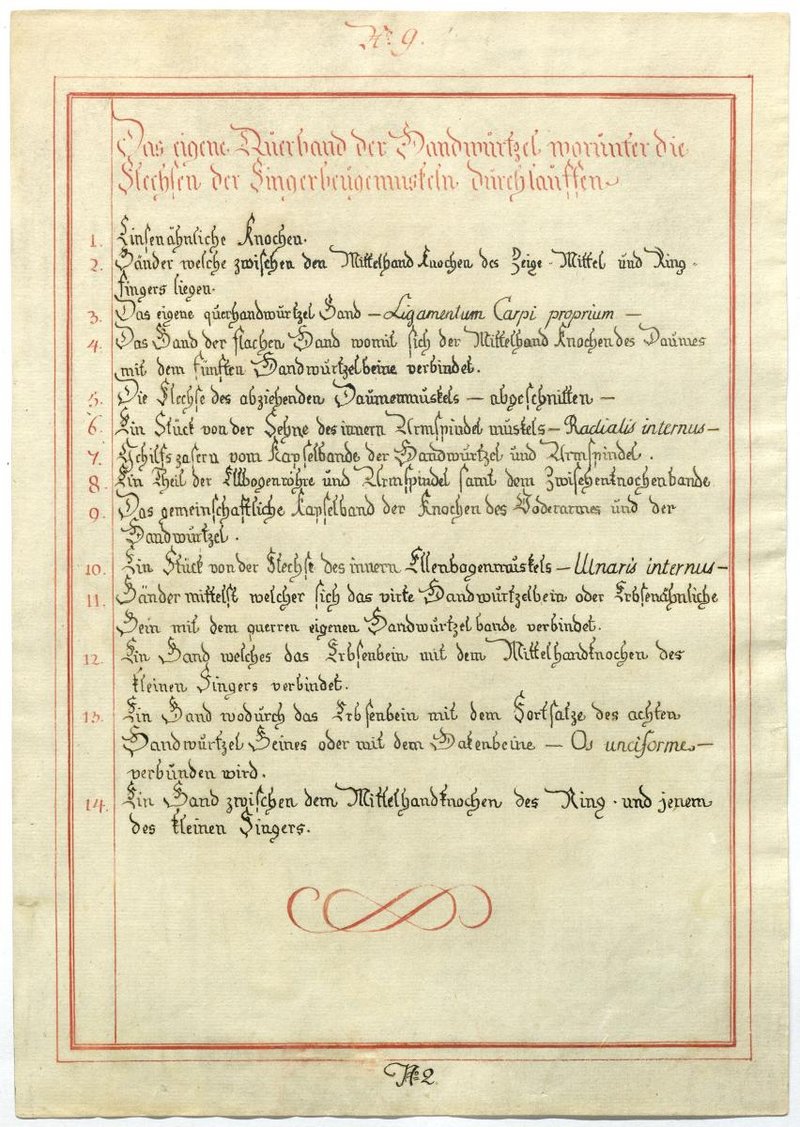 No. 9.
Das eigene Querband der Handwürtzel worunter die
Flechsen der Fingerbeügemuskeln durchlauffen
1. Linsenähnliche Knochen.
2. Bänder welche zwischen den Mittelhand Knochen des Zeige - Mittel und Ring -
fingers liegen.
3. Das eigene querhandwürtzel Band — Ligamentum Carpi proprium —
4. Das Band der flachen Hand womit sich der Mittelhand Knochen des Daumes
mit dem fünften Handwurtzelbeine verbindet.
5. Die Flechse des abziehenden Daumenmuskels — abgeschnitten —
6. Ein Stück von der Sehne des innern Armspindel muskels — Radialis internus —
7. Schilfszasern vom Kapselbande der Handwürtzel und Armspindel.
8. Ein Theil der Ellbogenröhre und Armspindel samt dem Zwischenknochenbande
9. Das gemeinschaftliche Kapselband der Knochen des Voderarmes und der
Handwurtzel.
10. Ein Stück von der Flechse des innern Ellenbogenmuskels — Ulnaris internus —
11. Bänder mittelst welcher sich das virte Handwurtzelbein oder Erbsenähnliche
Bein mit dem querren eigenen Handwürtzelbande verbindet.
12. Ein Band welches das Erbsenbein mit dem Mittelhandknochen des
kleinen Fingers verbindet.
13. Ein Band wodurch das Erbsenbein mit dem Fortsatze des achten
Handwurtzel Beines oder mit dem Hakenbeine — Os unciforme —
verbunden wird.
14. Ein Band zwischen dem Mittelhandknochen des Ring - und jenem
des kleinen Fingers.
No. 2